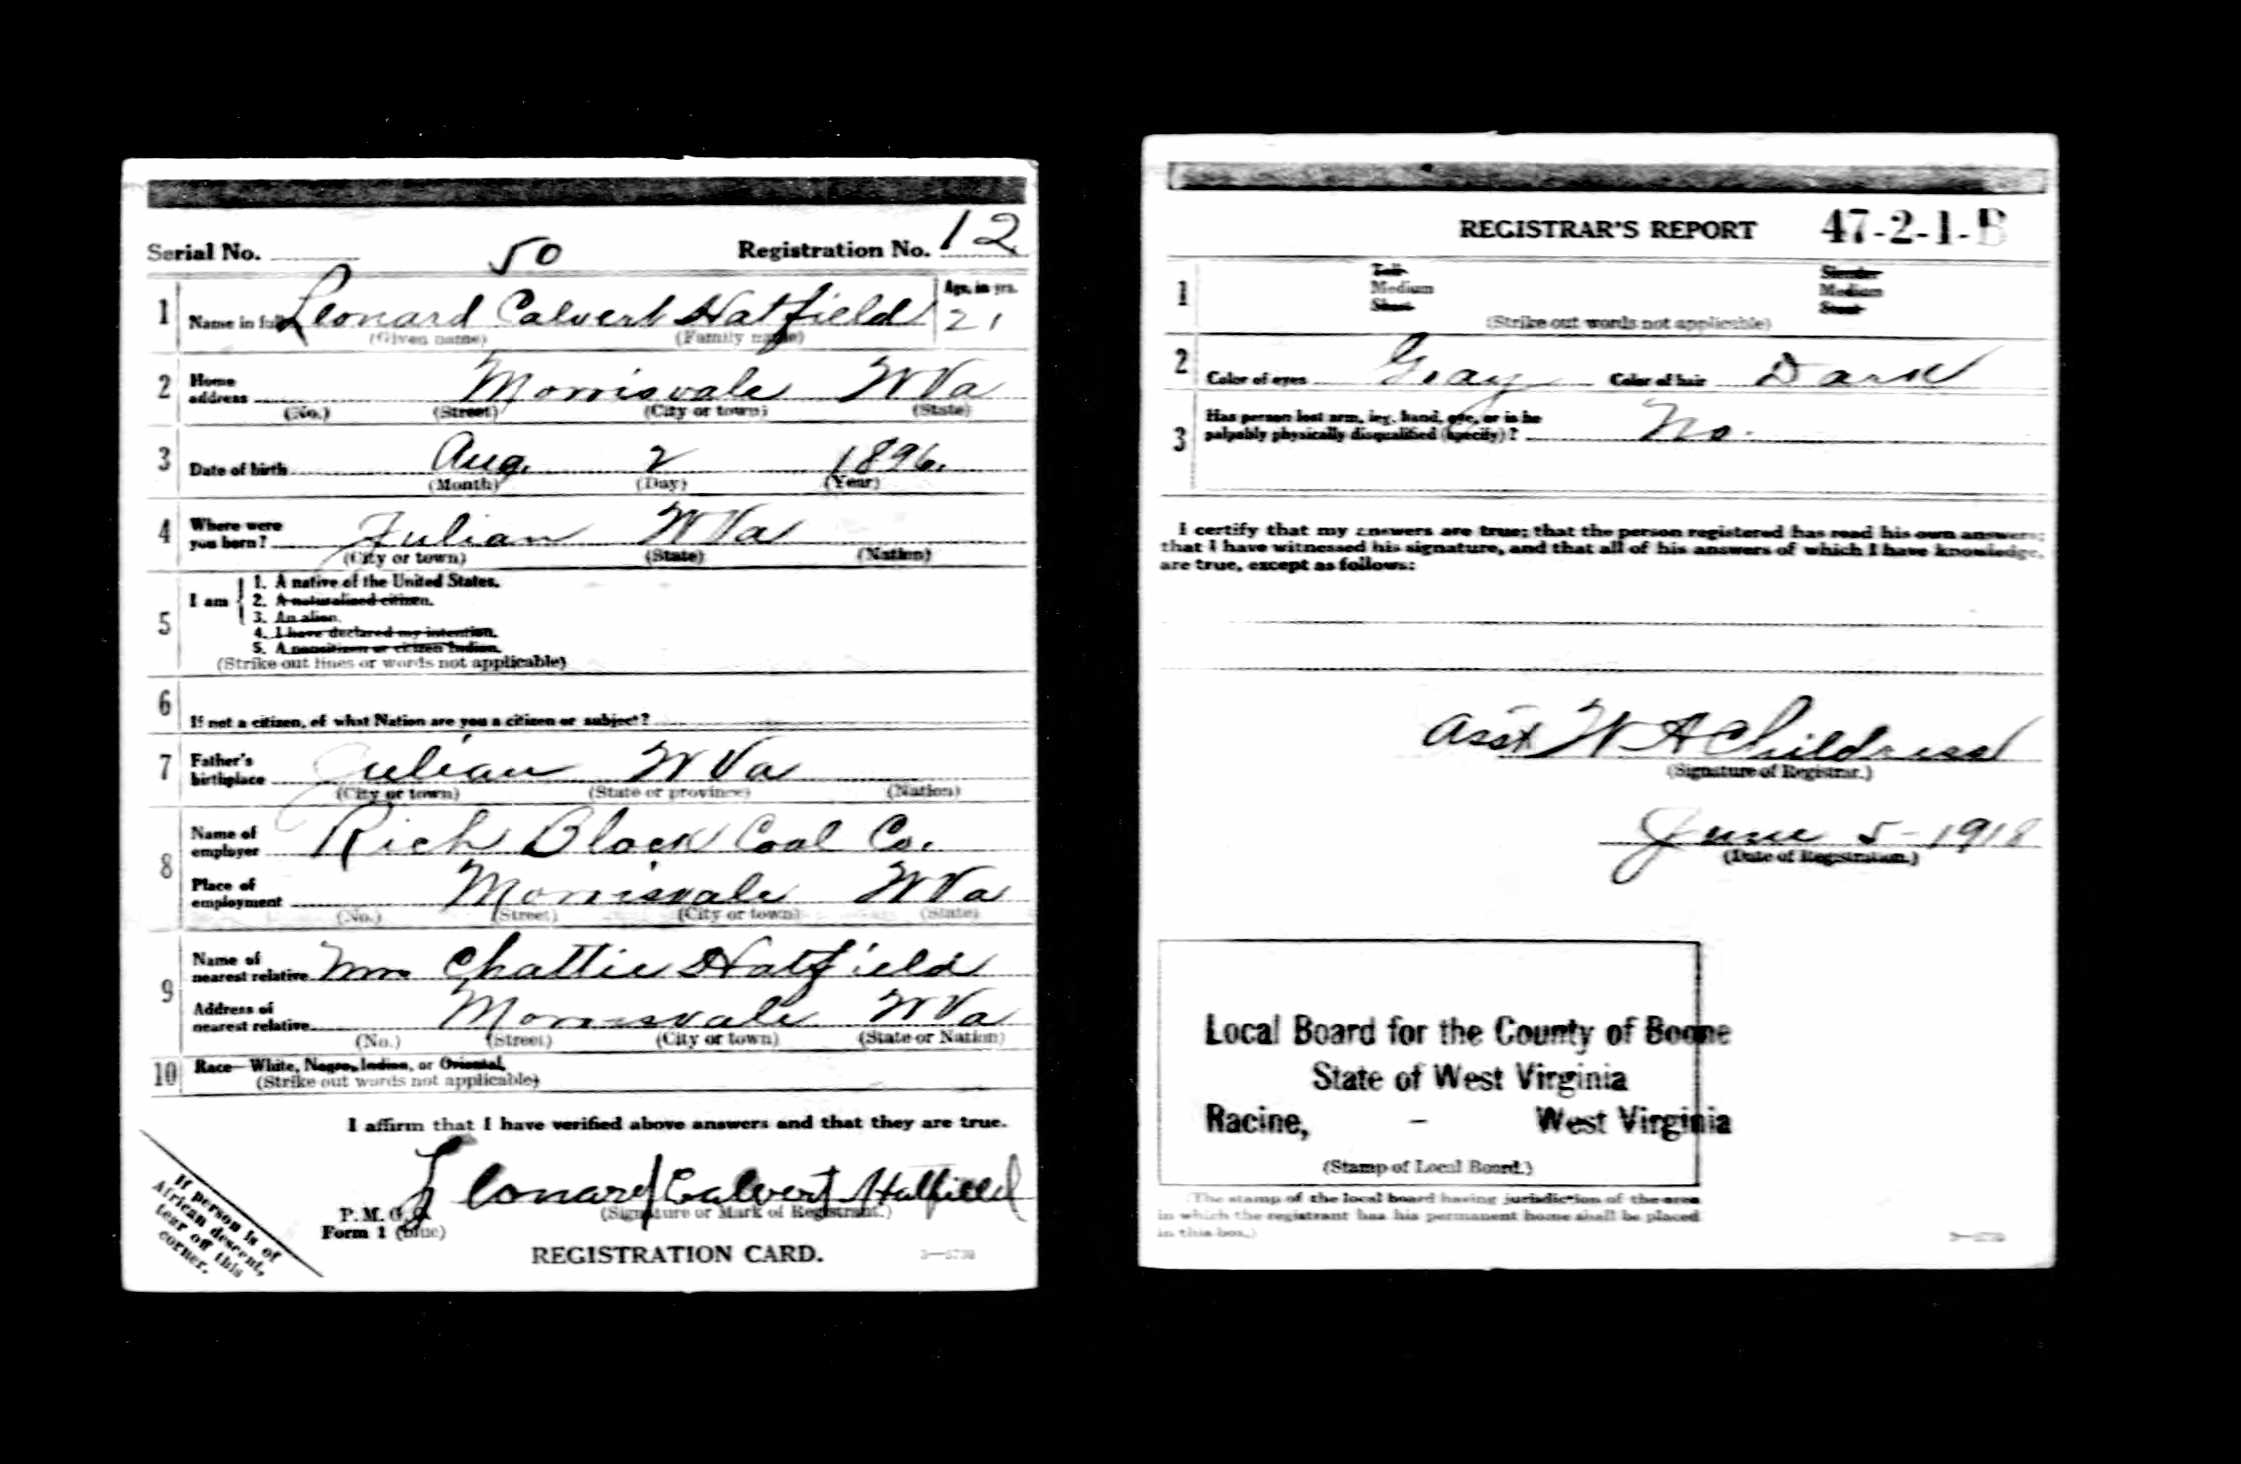 Serial No. 50 Registration No. 12
1 Name in full Leonard Calvert Hatfield Age, in yrs. 21
(Given name) (Family name)
2 Home address Morrisvale W Va
(No.) (Street) (City or town) (State)
3 Date of birth Aug. 2 1896.
(Month) (Day) (Year)
4 Where were you born? Julian W Va
(City or town) (State) (Nation)
5 I am
1. A native of the United States.
2. A naturalized citizen.
3. An alien.
4. I have declared my intention.
5. A noncitizen or citizen Indian.
(Strike out lines or words not applicable)
6 If not a citizen, of what Nation are you a citizen or subject?
7 Father's birthplace Julian W Va
(City or town) (State or province) (Nation)
8 Name of employer Rich Block Coal Co.
Place of employment Morrisvale W Va
(No.) (Street) (City or town) (State)
9 Name of nearest relative Mrs Chattie Hatfield
Address of nearest relative Morrisvale W Va
(No.) (Street) (City or town) (State or Nation)
10 Race—White, Negro, Indian, or Oriental.
(Strike out words not applicable)
I affirm that I have verified above answers and that they are true.
Leonard Calvert Hatfield
(Signature or Mark of Registrant.)
P. M. G. O.
Form 1 (blue)
REGISTRATION CARD.
If person is of
African descent,
tear off this
corner.
REGISTRAR'S REPORT 47-2-1-B
1 Tall Slender
Medium Medium
Short Stout
(Strike out words not applicable)
2 Color of eyes Gray Color of hair Dark
3 Has person lost arm, leg, hand, eye, or is he
palpably physically disqualified (specify)? No.
I certify that my answers are true; that the person registered has read his own answers;
that I have witnessed his signature, and that all of his answers of which I have knowledge,
are true, except as follows:
Asst W A Childress
(Signature of Registrar.)
June 5-1918
(Date of Registration.)
Local Board for the County of Boone
State of West Virginia
Racine, - West Virginia
(Stamp of Local Board.)
(The stamp of the local board having jurisdiction of the area
in which the registrant has his permanent home shall be placed
in this box.)